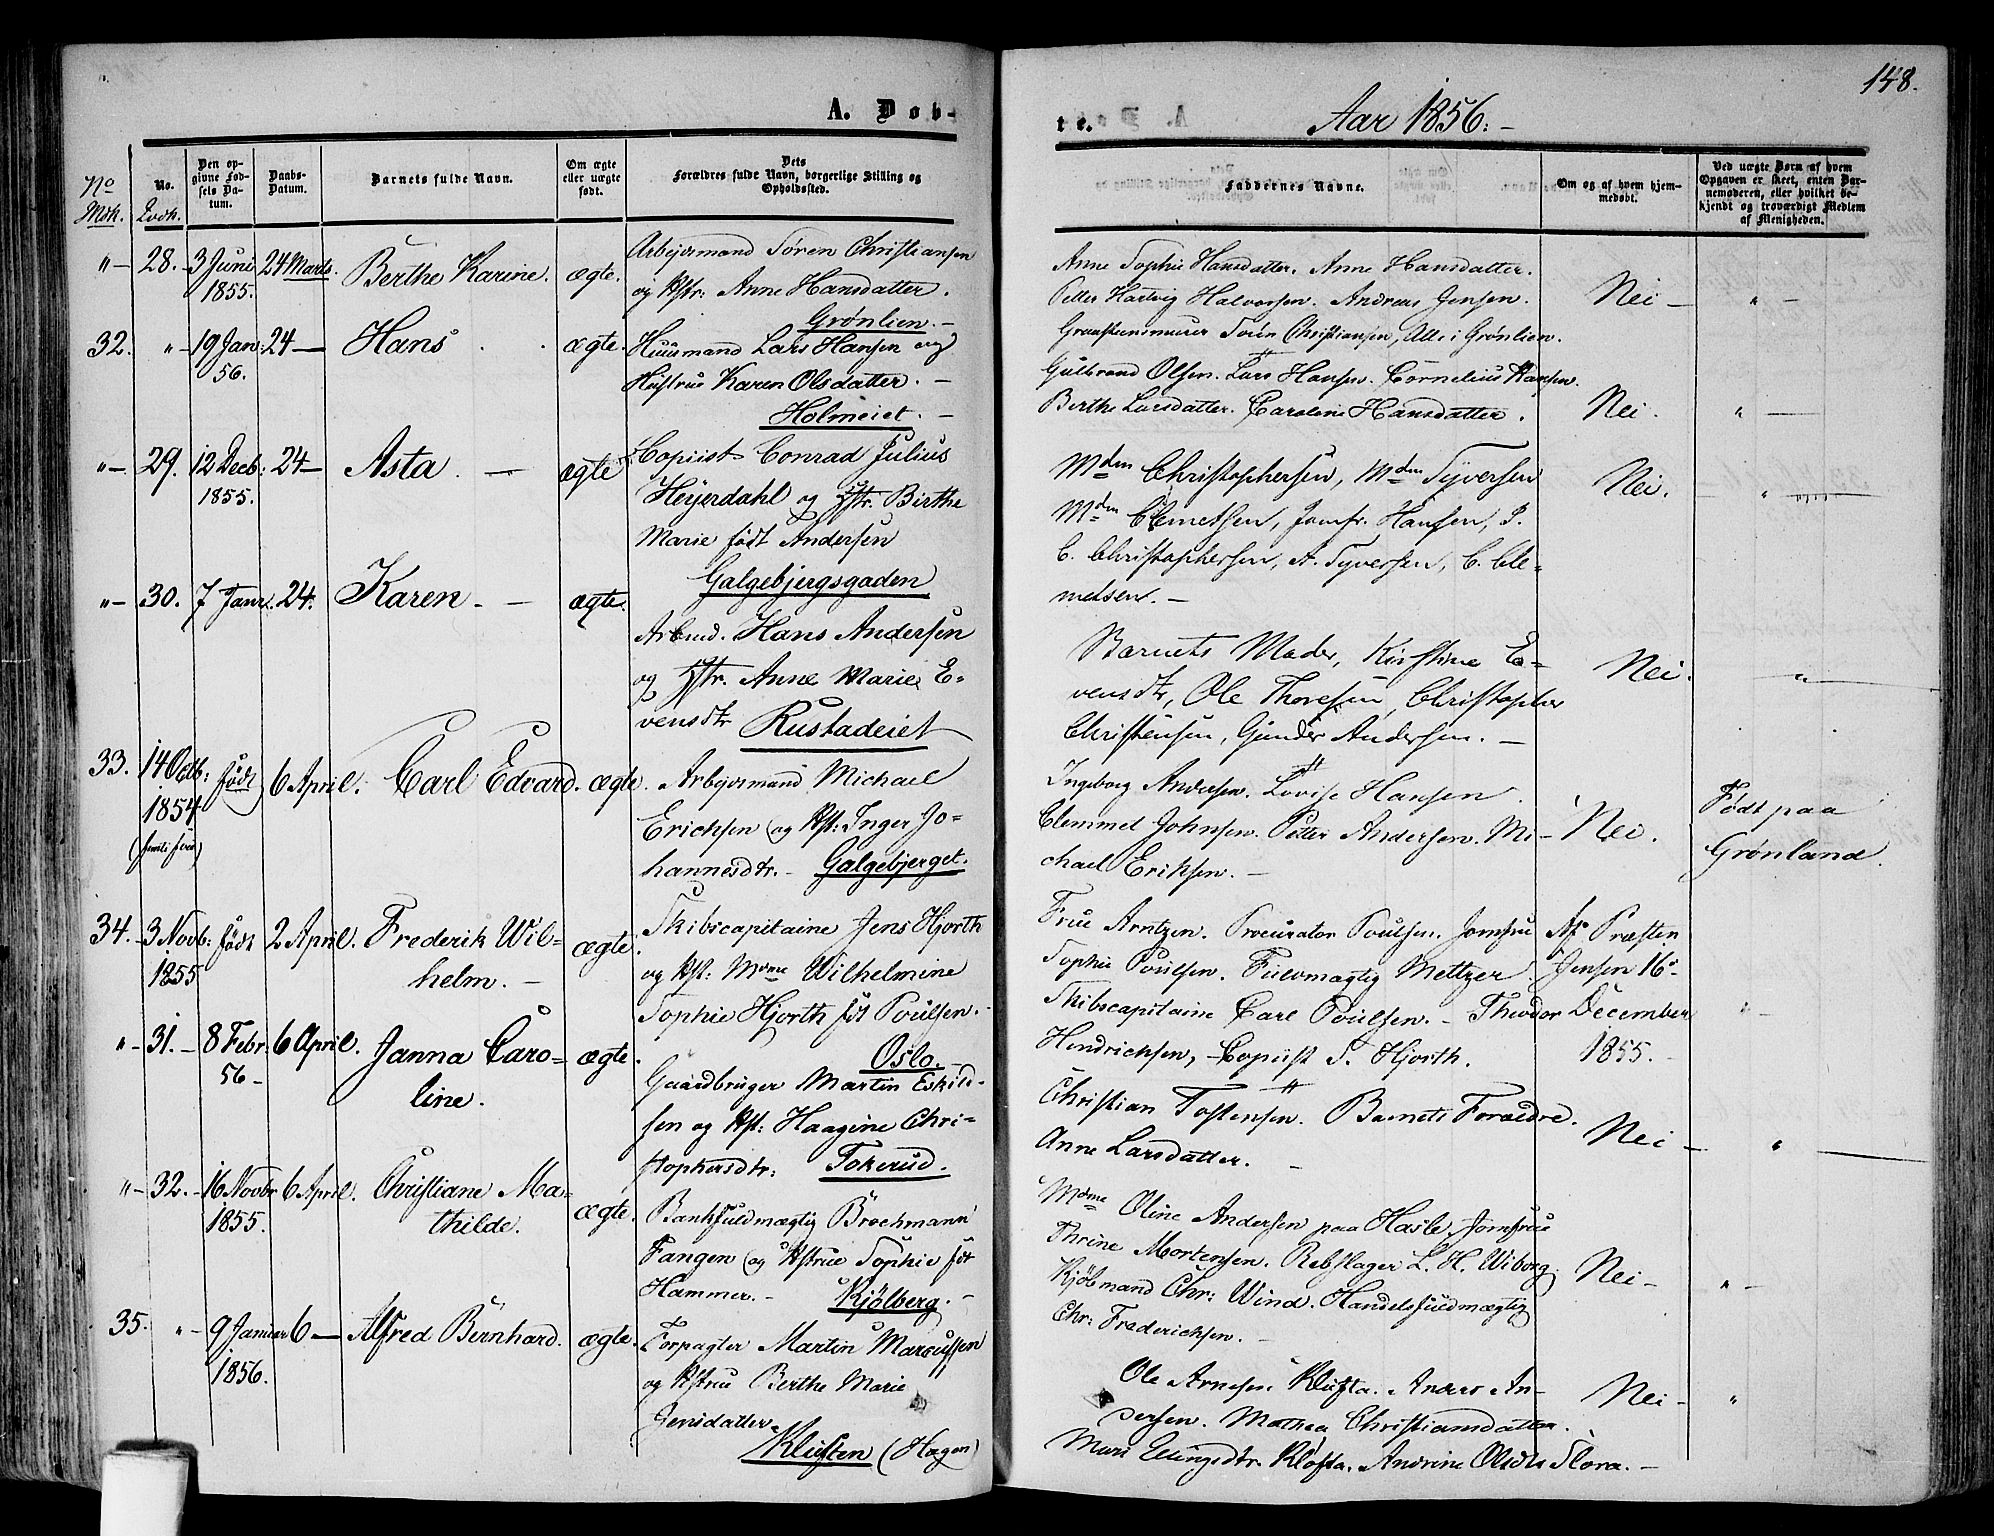 148.
A. Døb-
te.
Aar 1856.-
No Mdk.
No. Qvdk.
Den op-
givne Fød-
sels Da-
tum.
Daabs-
Datum.
Barnets fulde Navn.
Om ægte
eller uægte
født.
Dets
Forældres fulde Navn, borgerlige Stilling og
Opholdssted.
Faddernes Navne.
Om og af hvem hjem-
medøbt.
Ved uægte Børn af hvem
Opgaven er skeet, enten Bar-
nemoderen, eller hvilket be-
kjendt og troværdigt Medlem
af Menigheden.
"- 28.- 3 Juni 24 Marts. Berthe Karine. ægte.
1855.
Arbejdsmand Søren Christiansen
og Hstr: Anne Hansdatter.
Grønlien.-
Anne Sophie Hansdatter. Anne Hansdatter.
Petter Hartvig Halvorsen. Andreas Jensen.
Graasteensmurer Søren Christiansen, Alle i Grønlien.
Nei - " -
32. "- 19 Jan: 24 - Hans . . ægte.
56.
Huusmand Lars Hansen og
Hustrue Karen Olsdatter. -
Holmeiet. -
Gulbrand Olsen. Lars Hansen. Cornelius Hansen.
Berthe Larsdatter. Caroline Hansdatter.
Nei. " -
"- 29. 12 Decb: 24 - Asta. - ægte
1855.
Copiist Conrad Julius
Heyerdahl og Hstr. Birthe
Marie født Andersen
Galgebjergsgaden
Mdm Christophersen, Mdm Syversen
Mdm Clemetsen, Jomfr. Hansen, P.
C. Christophersen, A. Syversen, C. Cle-
metsen. -
Nei. "
"- 30. 7 Janr. 24. Karen. - ægte.
Arbmd. Hans Andersen
og Hstr. Anne Marie E-
vensdtr Rustadeiet
Barnets Moder, Kirstine E-
vensdtr, Ole Thoresen, Christopher
Christensen, Gunder Andersen. -
Nei. "
33. 14 Octb: født 6 April. Carl Edvard. ægte.
1854
Arbejdsmand Michael
Erichsen og Hst: Inger Jo-
hannesdtr.- Galgebjerget.
Ingeborg Andersen. Lovise Hansen.
Clemmet Johnsen. Petter Andersen. Mi-
chael Eriksen. -
Nei.
Født paa
Grønland.
34. 3 Novb: født 2 April. Frederik Wil-
helm. - ægte.
1855
Skibscapitaine Jens Hjorth
og Hst: Mdme Wilhelmine
Sophie Hjorth fdt Poulsen.
Oslo.
Frue Arntzen. Procurator Poulsen. Jomfrue
Sophie Poulsen. Fuldmægtig Meltzer.
Skibscapitaine Carl Poulsen. - Theodor
Hendrichsen, Copiist S. Hjorth.
Af Præsten
Jensen 16
December
1855. "-
"- 31.- 8 Febr. 6 April. Janna Caro-
line. ægte.
56 -
Gaardbruger Martin Eskild-
sen og Hst: Haagine Chri-
stophersdtr: Tokerud.
Christian Tostensen. Barnets Forældre.
Anne Larsdatter. -
Nei - "
"- 32.- 16 Novbr 6 April. Christiane Ma-
thilde. ægte.
1855.
Bankfuldmægtig Brochmann
Fangen og Hstrue Sophie fdt
Hammer. - Kjølberg. -
Mdme Oline Andersen paa Hasle. Jomfrue
Thrine Mortensen. Rebslager L. H. Wiborg.
Kjøbmand Chr: Wind. Handelsfuldmægtig
Chr: Frederichsen. -
Nei - " -
35. "- 9 Januar 6 - Alfred Bernhard. ægte.
1856.
Forpagter Martin Marcussen
og Hstrue Berthe Marie
Jensdatter.
Kliften (Hagen)
Ole Arnesen Kløfta. Anders An-
dersen. Mathea Christiansdatter.
Mari Ellingsdtr. Kløfta. Andrine Olsdtr Flora. -
Nei - "